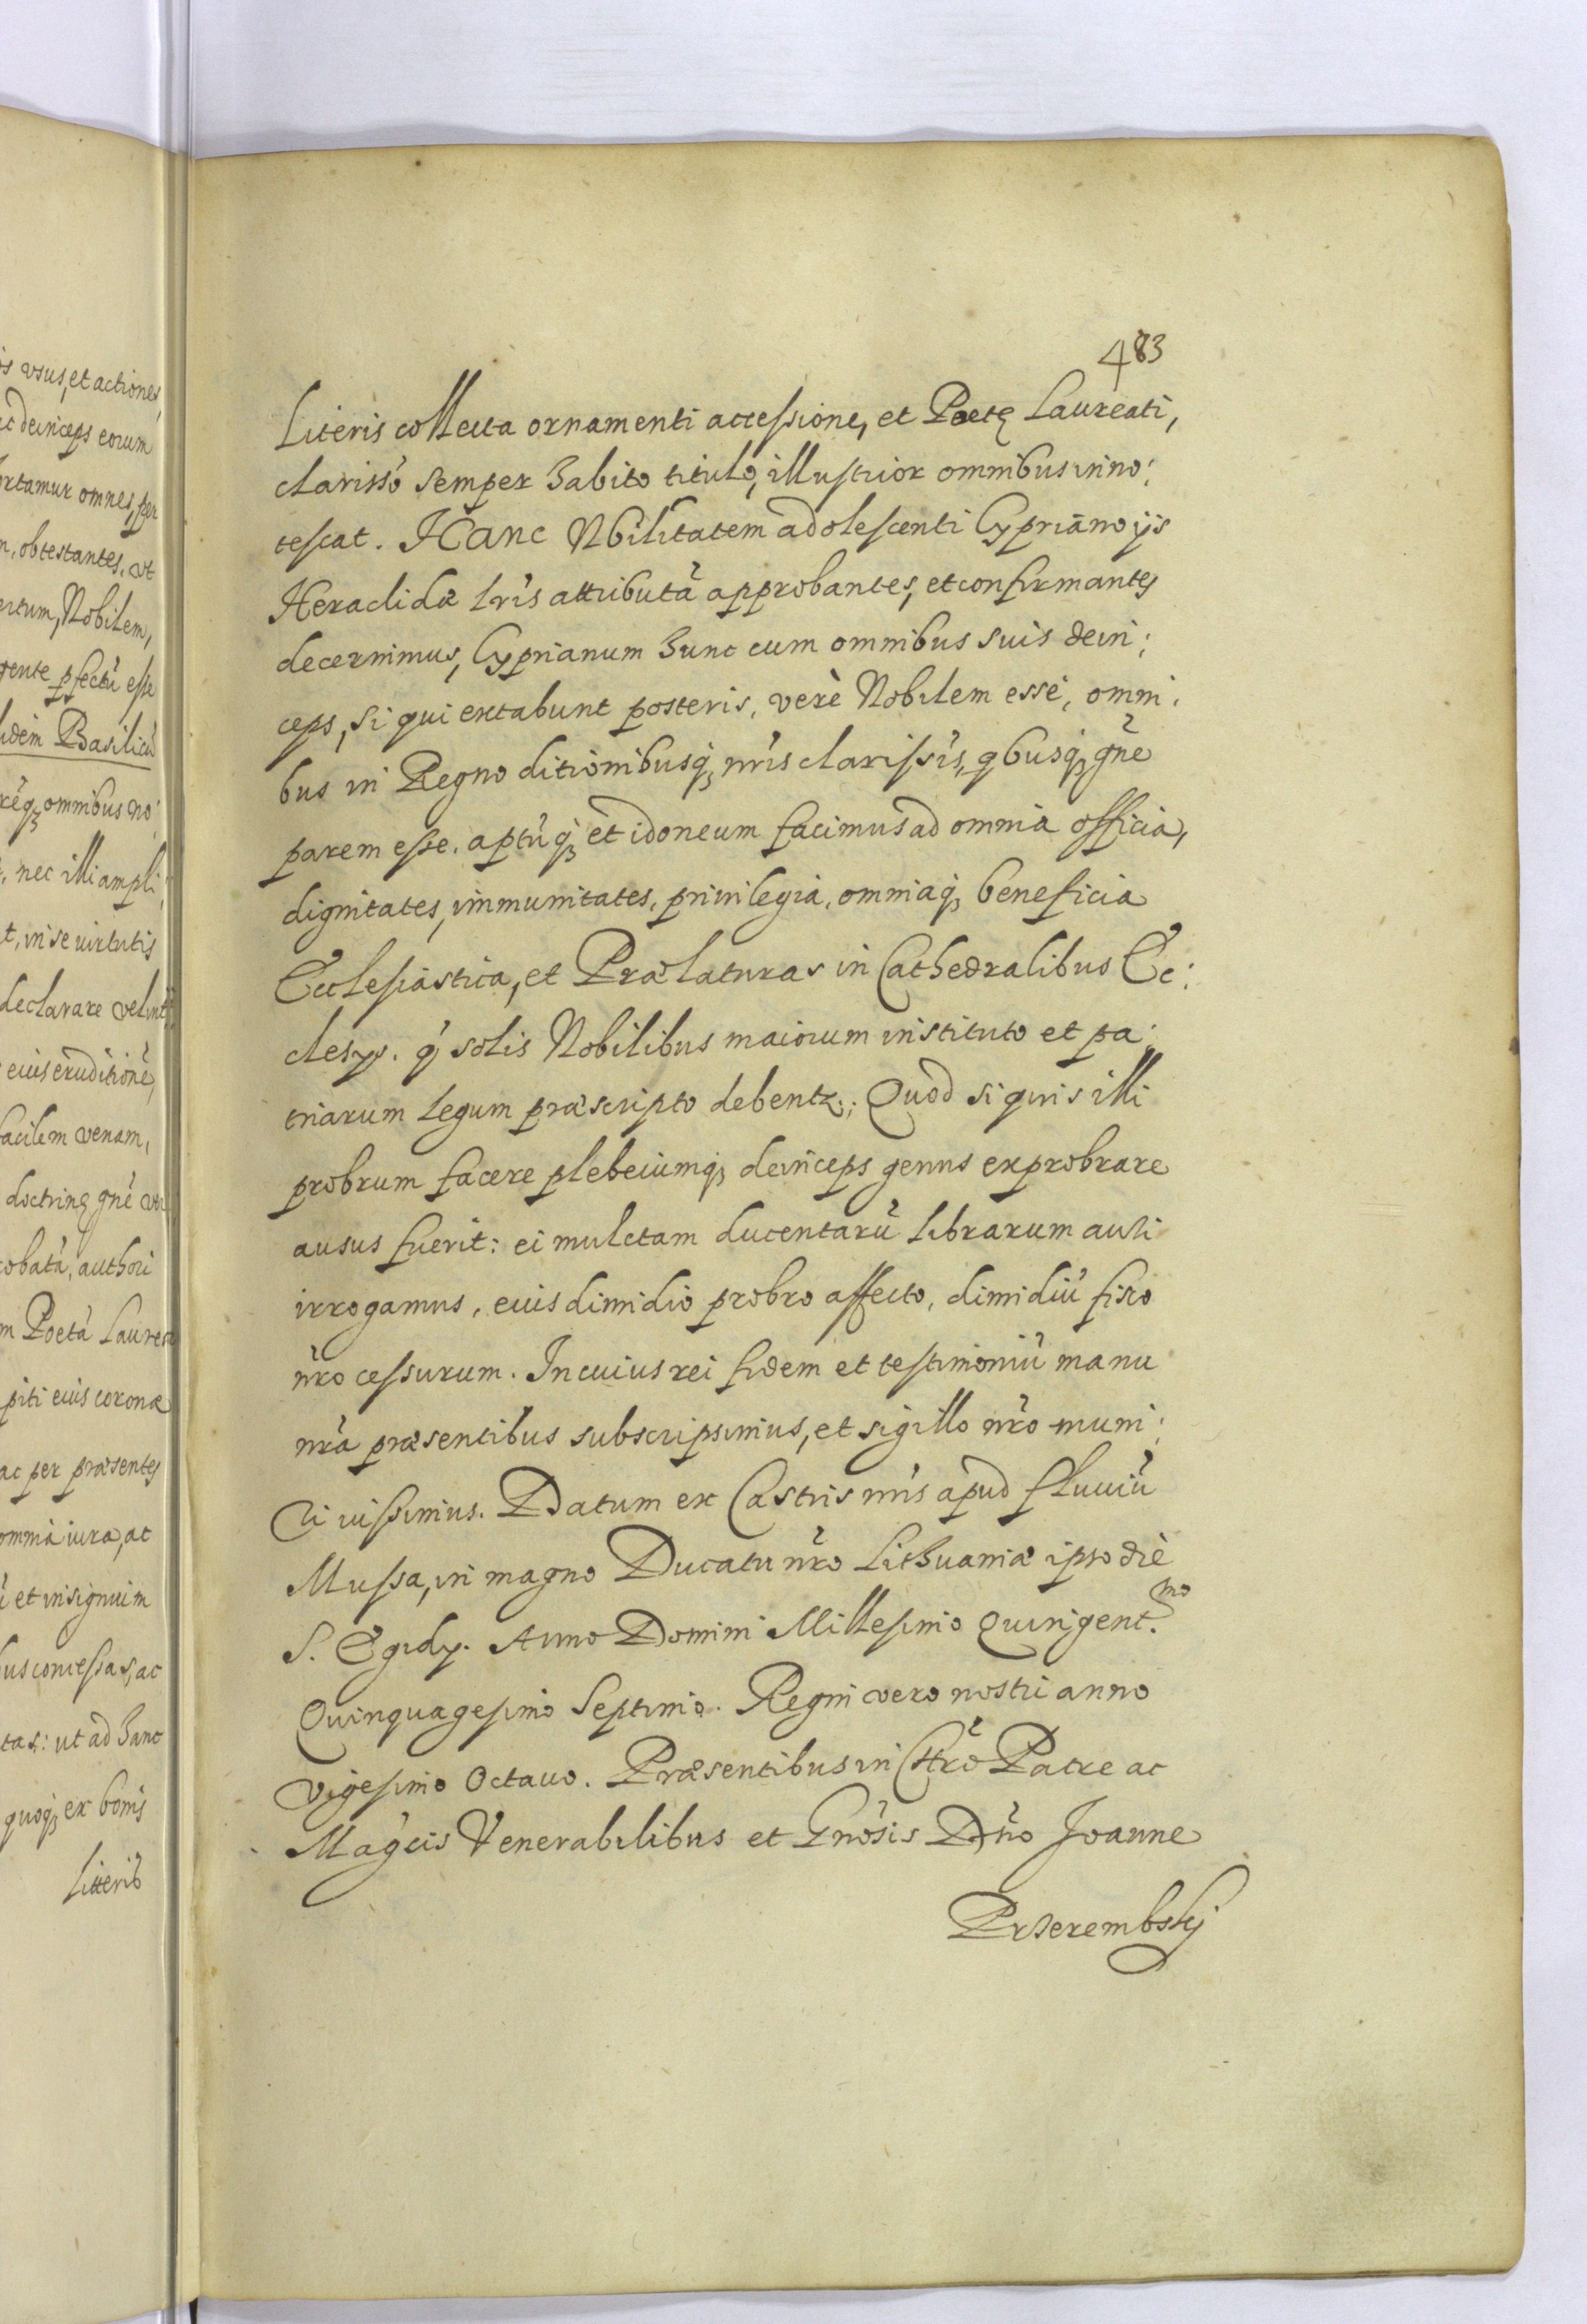 is usus, et actiones,
ac deinceps eorum
ortamur omnes, per
n, obtestantes, ut
ertum, Nobilem,
gente pfectũ esse
lidem Basilicũ
req; omnibus no:
, nec illi ampli:
t, in se virtutis
declarare velint;
eius eruditionẽ,
facilem venam,
doctrinę gñe
obatã, authori
m Poetã Laurea
piti eius coronæ
ac per præsentes
omnia iura, ac
et insignium
us concessas, ac
tas: ut ad hanc
quoq; ex bonis
Litteris
483
Literis collecta ornamenti accessione, et Poetę Laureati,
clariss̃o semper habito titulo, illustrior omnibus inno:
tescat. Hanc Nbilitatem adolescenti Cypriano ijs
Heraclidæ lr̃is attributã approbantes, et confirmantes
decernimus, Cyprianum hunc cum omnibus suis dein:
ceps, si qui extabunt posteris, verè Nobilem esse, omni:
bus in Regno ditionibusq; nr̃is clarissĩs, qbusq; gñe
parem esse. aptũq; et idoneum facimus ad omnia officia,
dignitates, immunitates, privilegia, omniaq; beneficia
Ecclesiastica, et Prælaturas in Cathedralibus Ec:
clesijs. q̃ solis Nobilibus maiorum instituto et pa:
triarum legum præscripto debentr.; Quod si quis illi
probrum facere plebeiumq; deinceps genus exprobrare
ausus fuerit: ei mulctam ducentarũ librarum auri
irrogamus, eius dimidio probro affecto, dimidiũ fisco
nr̃o cessurum. In cuius rei fidem et testimoniũ manu
nr̃a præsentibus subscripsimus, et sigillo nr̃o muni:
ri iussimus. Datum ex Castris nr̃is apud fluviũ
Mussa, in magno Ducatu nr̃o Lithuaniæ ipso die
S. Egidij. Anno Domini Millesimo Quingent.mo
Quinquagesimo Septimo. Regni vero nostri anno
vigesimo Octavo. Præsentibus in Chr̃o Patre ac
Mag̃cis Venerabilibus et Gñosis Dño Joanne
Przerembskij